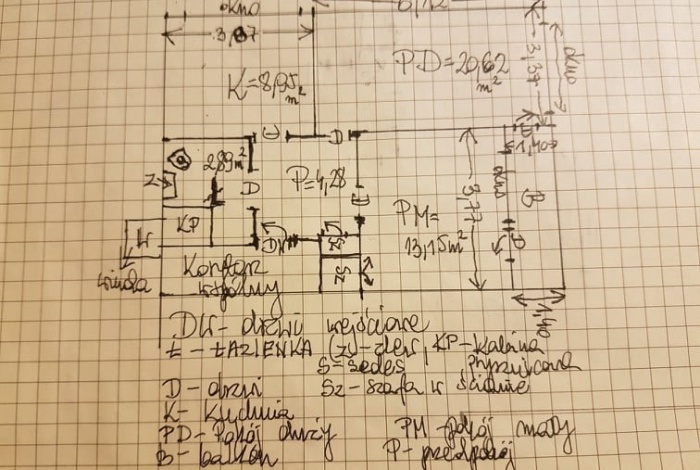 okno
3,87
3,37
okno
K=8,95 m²
PD=20,62 m²
D
D
D
1,40
2,89 m²
D
P=4,28
D
okno
B
3,77
Z
KP
PM=
13,15 m²
D
W
DW
Sz
Sz
winda
Korytarz
wspólny
1,40
DW- drzwi wejściowe
Ł - ŁAZIENKA (Z)-zlew, KP-kabina
S=sedes prysznicowa
D - drzwi Sz-szafa w ścianie
K- Kuchnia
PD- Pokój duży PM-pokój mały
B- balkon P- przedpokój